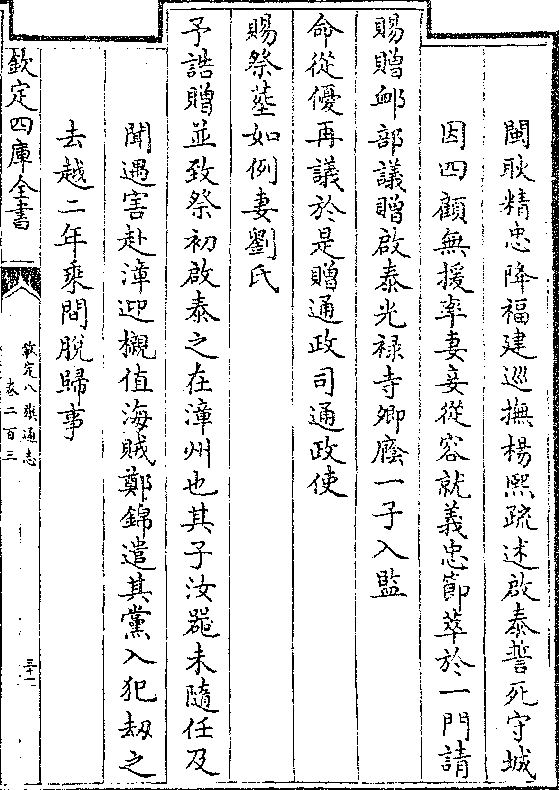 閩耿精忠降福建巡撫楊熙疏述啟泰誓死守城
因四顧無援率妻妾從容就義忠節萃於一門請
賜贈卹部議贈啟泰光禄寺卿廕一子入監
命從優再議於是贈通政司通政使
賜祭塟如例妻劉氏
予誥贈並致祭初啟泰之在漳州也其子汝器未隨任及
聞遇害赴漳迎櫬值海賊鄭錦遣其黨入犯刼之
去越二年乘間脱歸事
欽定四庫全書
欽定八旗通志
卷二百三
三十一